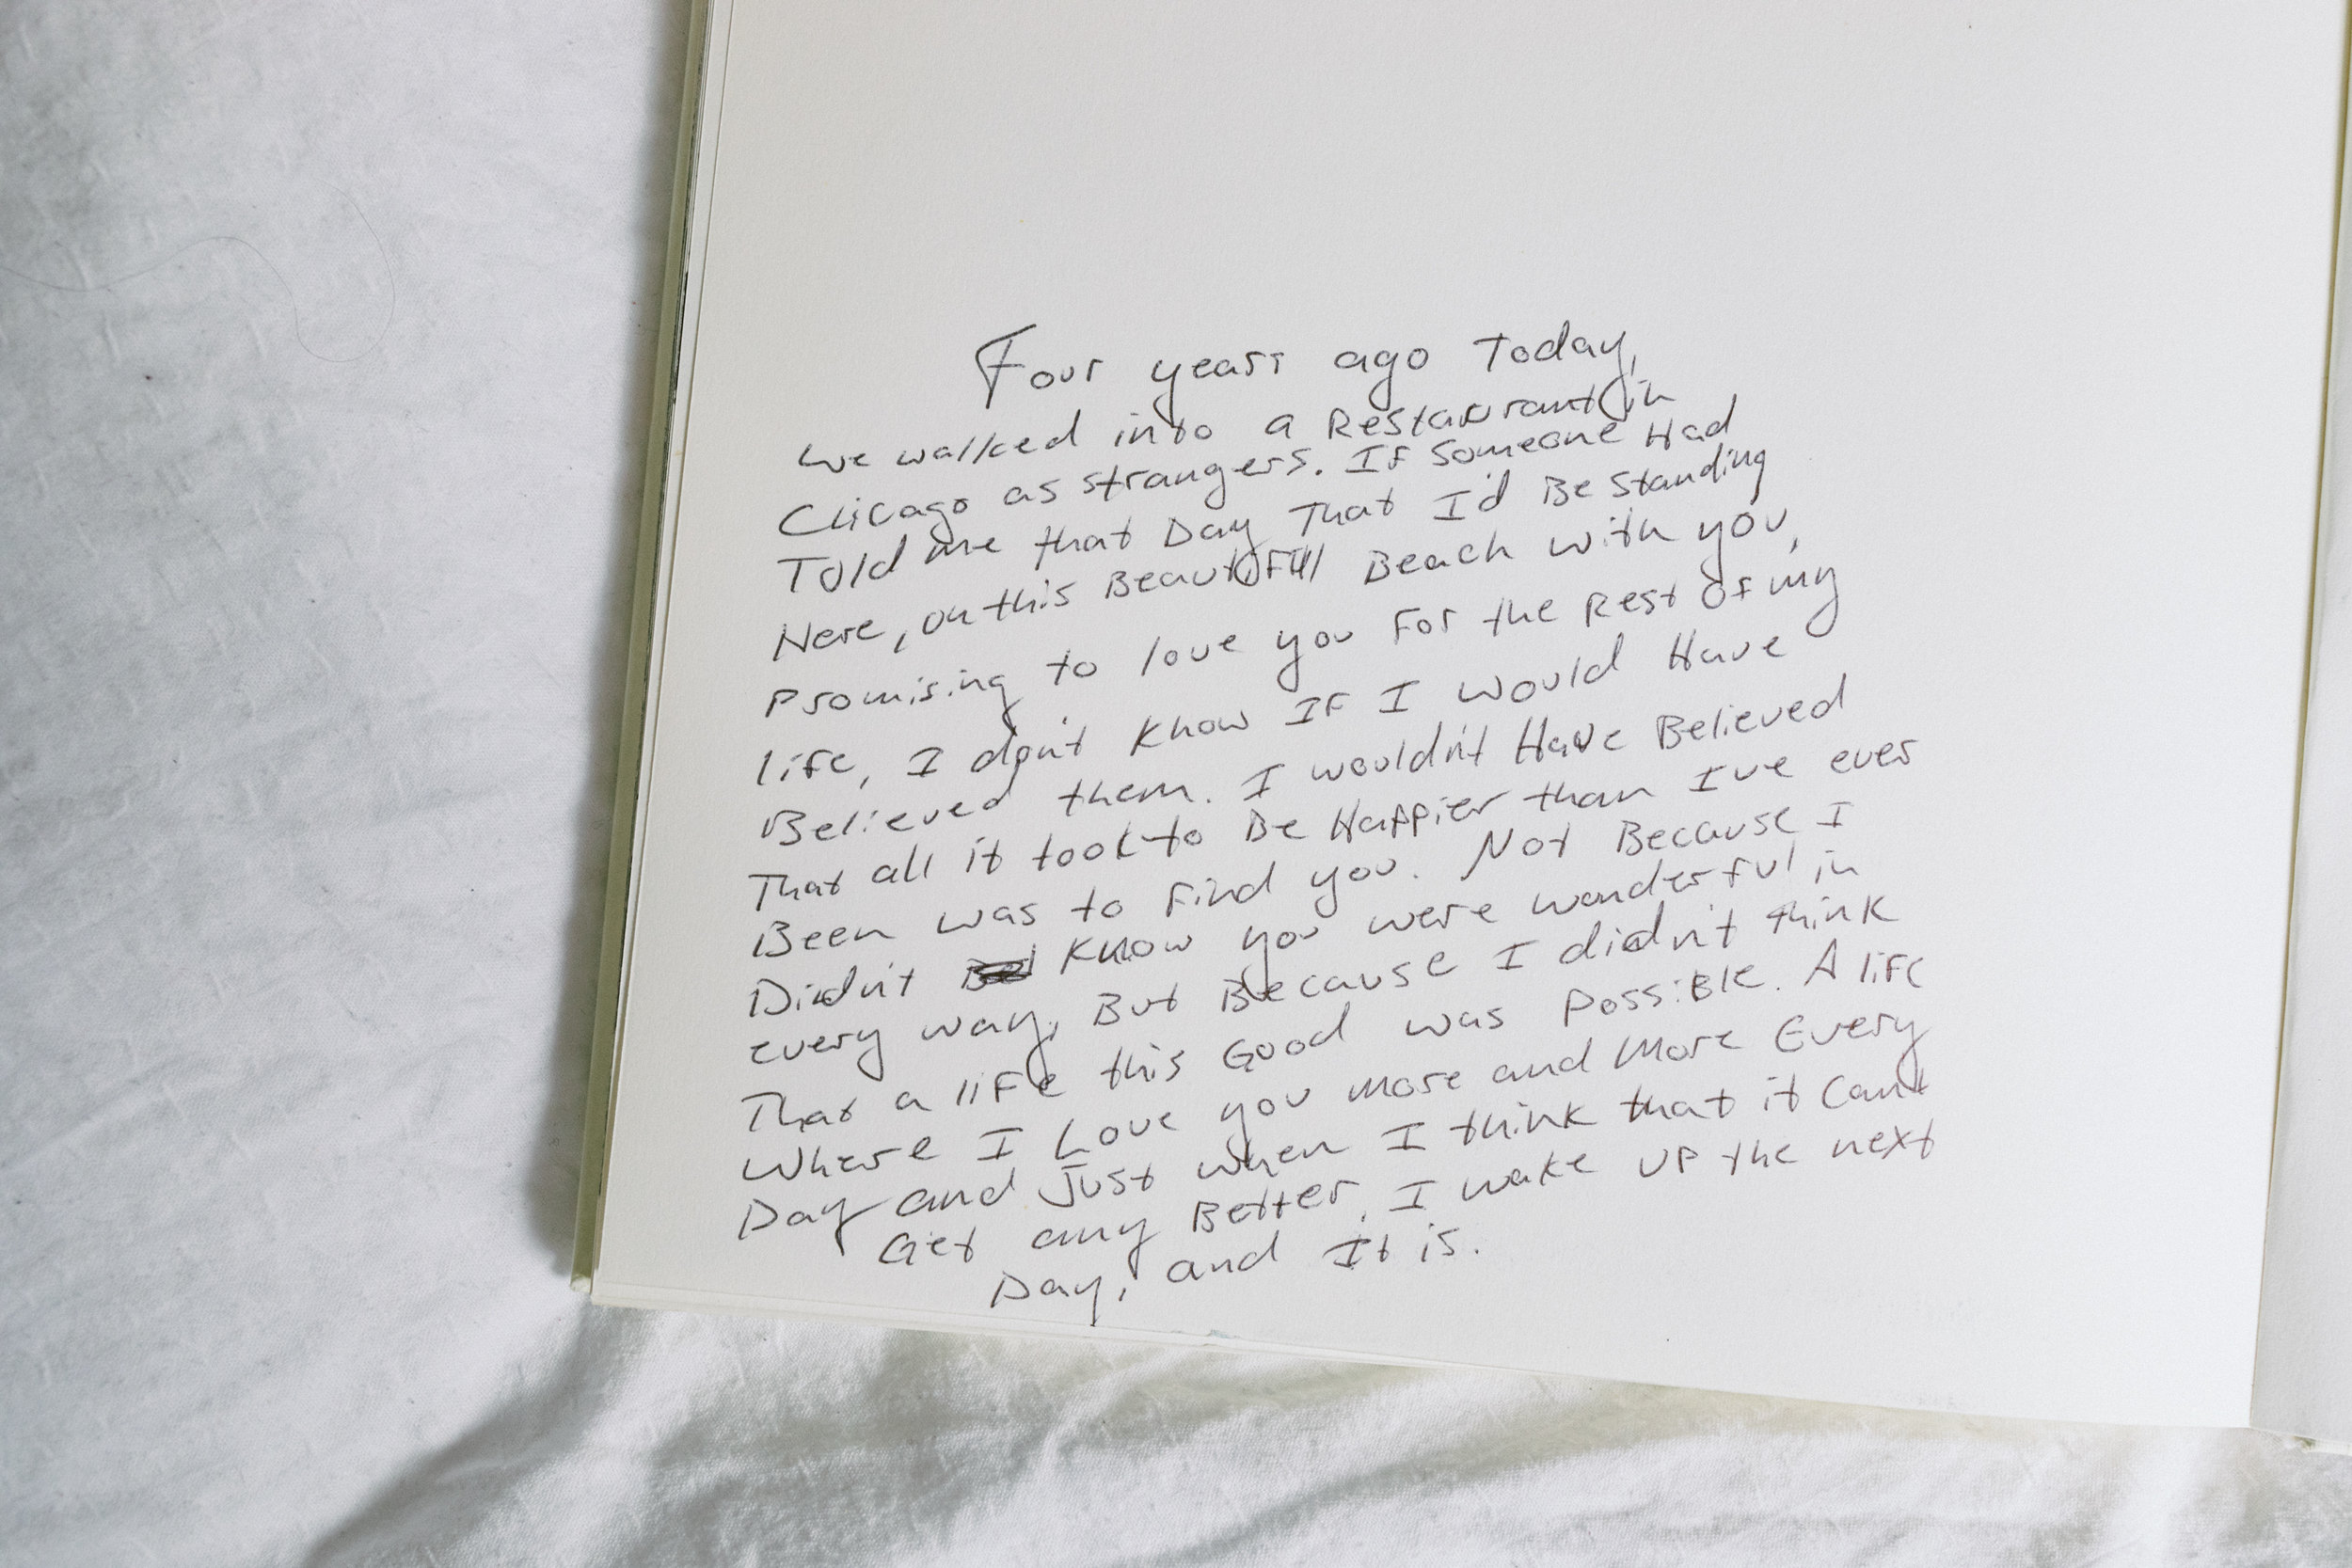 Four years ago Today,
we walked into a Restaurant in
Chicago as strangers. If Someone Had
Told me that Day That I'd Be Standing
Here, on this Beautiful Beach with you,
Promising to love you For the Rest of my
life, I don't Know If I would Have
Believed them. I wouldn't Have Believed
That all it took to Be Happier than I've ever
Been was to Find you. Not Because I
Didn't Know you were wonderful in
every way, But Because I didn't think
That a life this Good was Possible. A life
Where I Love you more and More Every
Day and Just when I think that it Can't
Get any Better, I wake UP the next
Day, and It is.